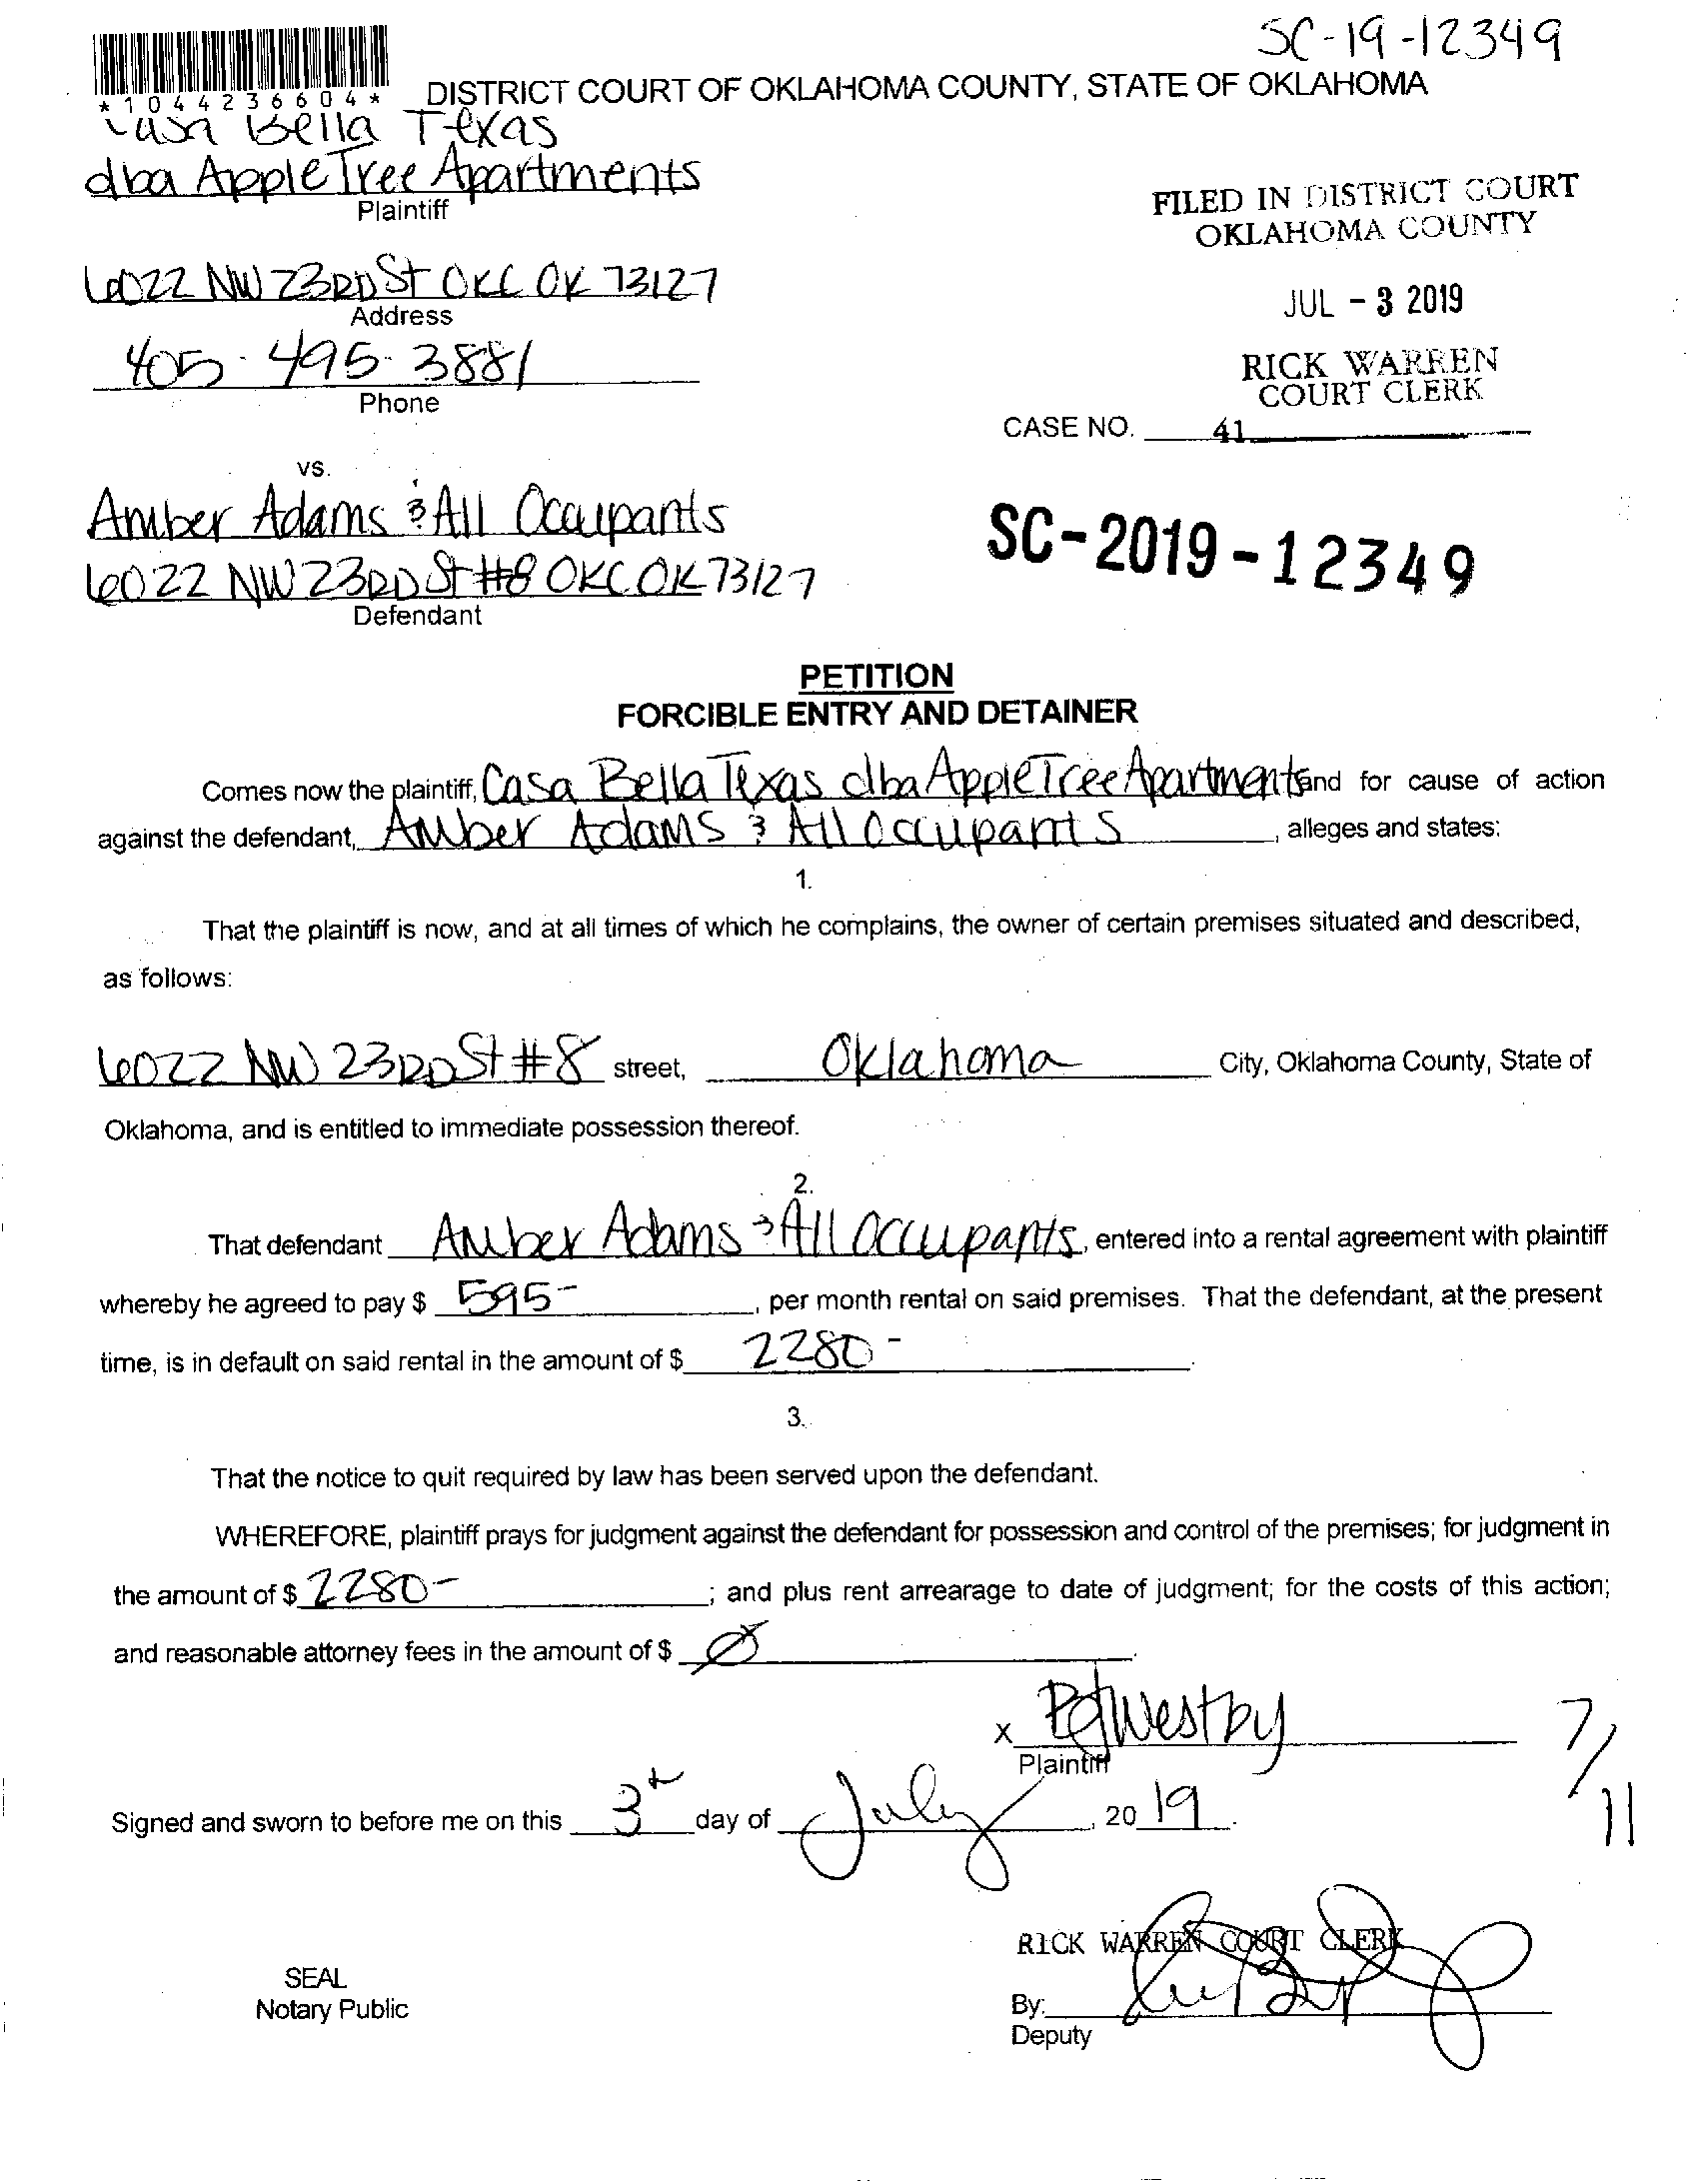 SC-19-12349
*1044236604*
DISTRICT COURT OF OKLAHOMA COUNTY, STATE OF OKLAHOMA
Casa Bella Texas
dba AppleTree Apartments
Plaintiff
FILED IN DISTRICT COURT
OKLAHOMA COUNTY
6022 NW 23RD St OKC OK 73127
Address
JUL - 3 2019
405-495-3881
Phone
RICK WARREN
COURT CLERK
CASE NO. 41
vs.
Amber Adams & All Occupants
6022 NW 23RD St #8 OKC OK 73127
Defendant
SC-2019-12349
PETITION
FORCIBLE ENTRY AND DETAINER
Comes now the plaintiff, Casa Bella Texas dba AppleTree Apartments and for cause of action
against the defendant, Amber Adams & All Occupants, alleges and states:
1.
That the plaintiff is now, and at all times of which he complains, the owner of certain premises situated and described,
as follows:
6022 NW 23RD St #8 street, Oklahoma City, Oklahoma County, State of
Oklahoma, and is entitled to immediate possession thereof.
2.
That defendant Amber Adams & All Occupants, entered into a rental agreement with plaintiff
whereby he agreed to pay $ 595-, per month rental on said premises. That the defendant, at the present
time, is in default on said rental in the amount of $ 2280-.
3.
That the notice to quit required by law has been served upon the defendant.
WHEREFORE, plaintiff prays for judgment against the defendant for possession and control of the premises; for judgment in
the amount of $ 2280-; and plus rent arrearage to date of judgment; for the costs of this action;
and reasonable attorney fees in the amount of $ Ø.
X Westby
Plaintiff
7/11
Signed and sworn to before me on this 3rd day of July, 2019.
RICK WARREN COURT CLERK
SEAL
Notary Public
By:
Deputy